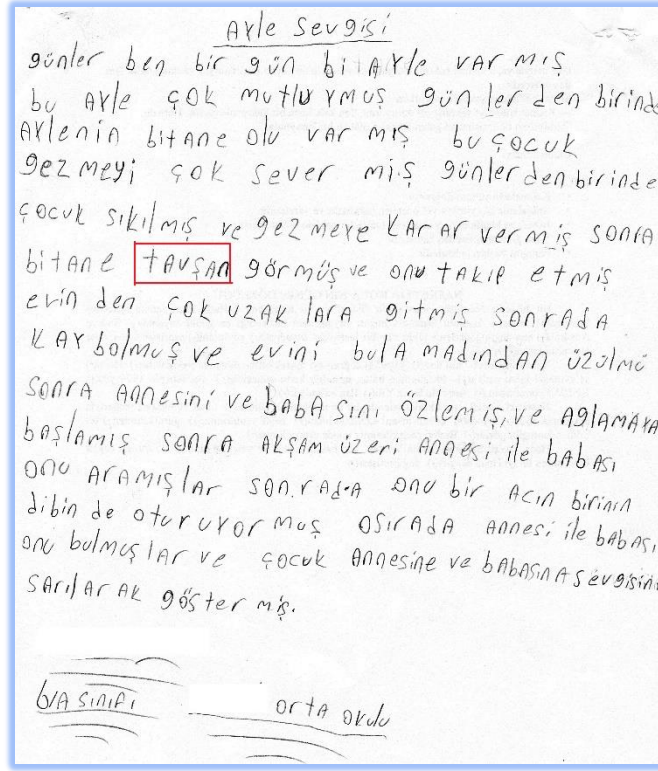 Ayle Sevgisi
günler ben bir gün bi tayle varmış
bu ayle çok mutluymuş günlerden birinde
aylenin bitane olu varmış bu çocuk
gezmeyi çok severmiş günlerden birinde
çocuk sıkılmış ve gezmeye karar vermiş sonra
bitane tavşan görmüş ve onu takip etmiş
evinden çok uzaklara gitmiş sonrada
kaybolmuş ve evini bulamadından üzülmü
sonra annesini ve babasını özlemiş, ve aglamaya
başlamış sonra akşam üzeri annesi ile babası
onu aramışlar sonrada onu bir acın birinin
dibinde oturuyormuş osırada annesi ile babası
onu bulmuşlar ve çocuk annesine ve babasına sevgisini
sarılarak göstermiş.
6/A sınıfı orta okulu